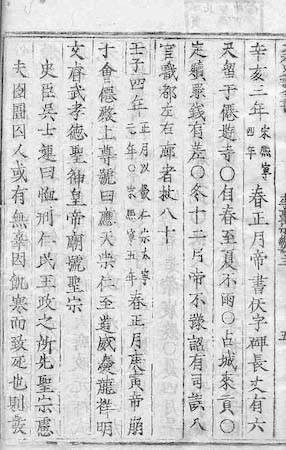 辛亥三年宋熙寧四年春正月帝書佛字碑長丈有六
尺留于僊遊寺○自春至夏不雨○占城來貢○
定贖罪錢有差○冬十二月帝不豫詔有司誤入
官職都左右廊者杖八十
壬子四年正月以後仁宗太寧元年○宋熙寧五年春正月庚寅帝崩
于會僊殿上尊號曰應天崇仁至道威慶龍祥明
文睿武孝德聖神皇帝廟號聖宗
史臣吳士連曰恤刑仁民王政之所先聖宗慮
夫囹圄囚人或有無辜因飢寒而致死也則發